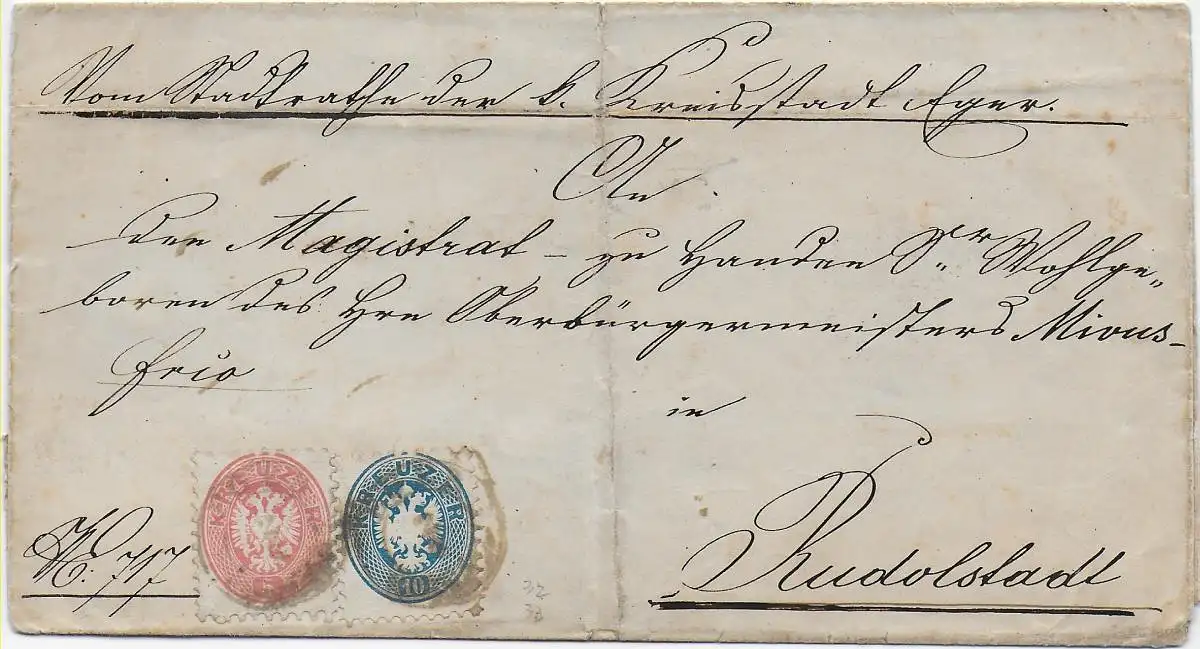 Vom Stadtrathe der k. Kreisstadt Eger.
An
den Magistrat – zu Handen Sr Wohlge„
boren des Hrn Oberbürgermeisters Mirus
frco
in
Rudolstadt
No. 717
KREUZER
5
KREUZER
10
32